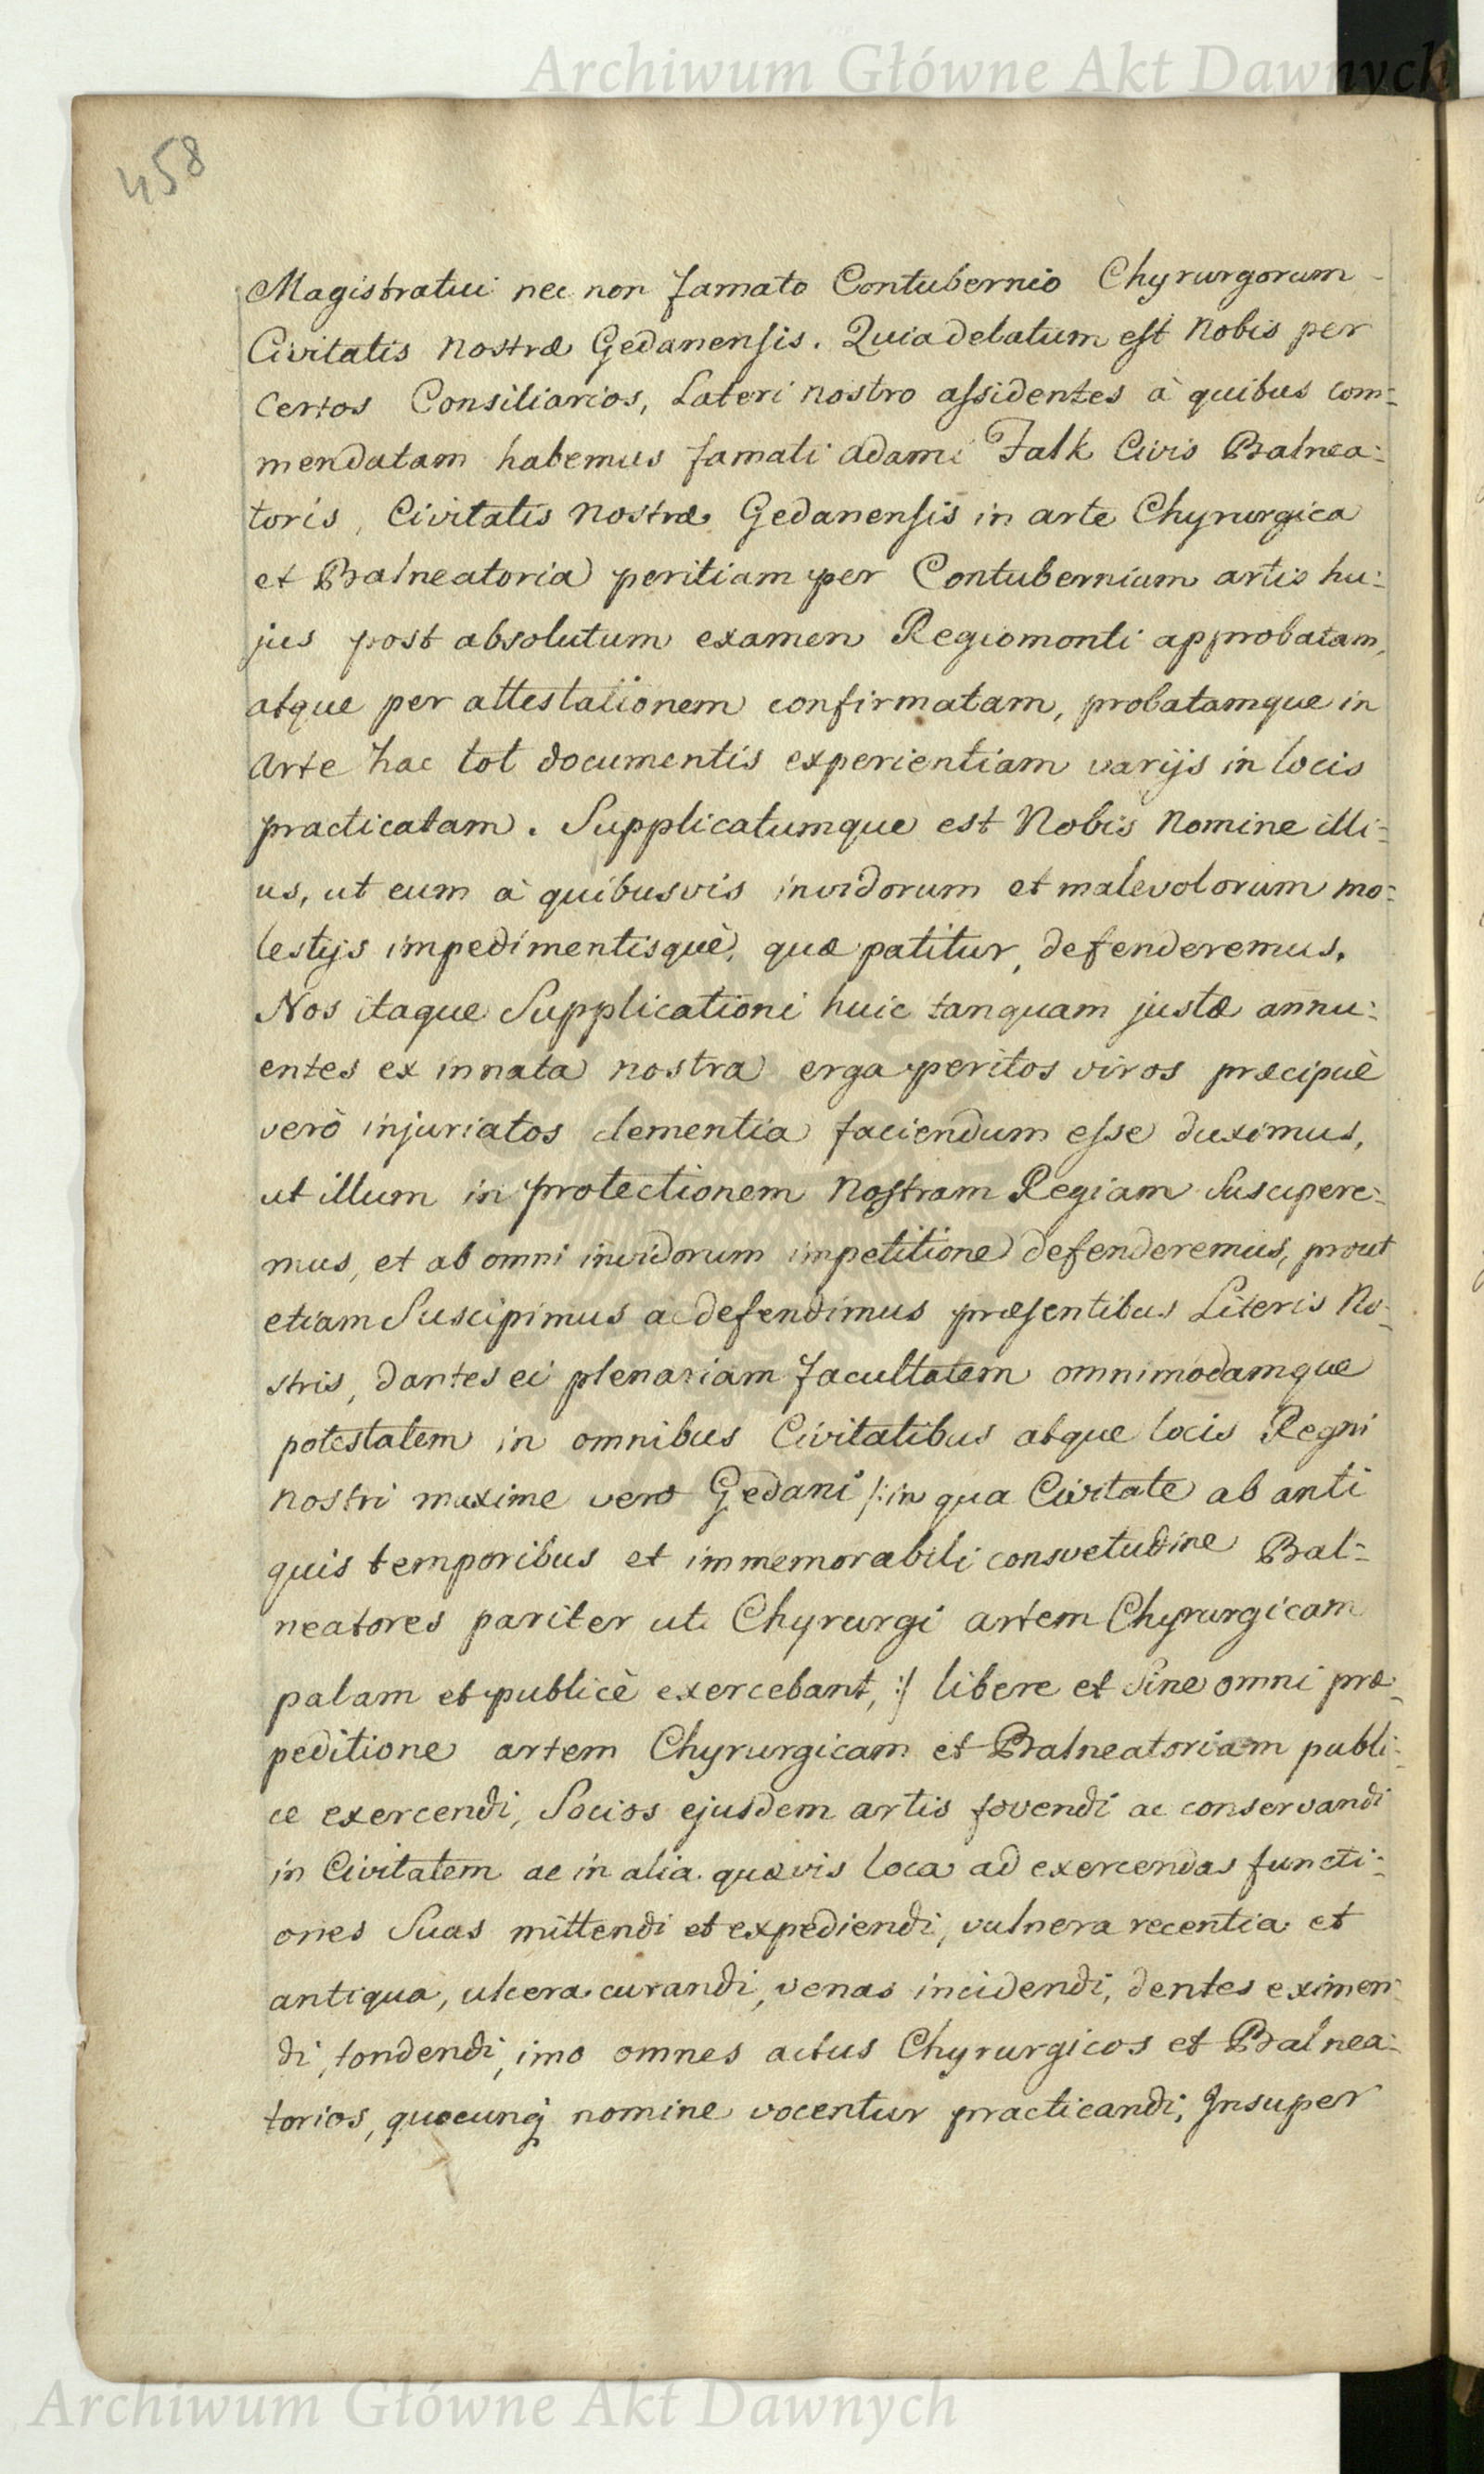 Archiwum Główne Akt Dawnych
458
Magistratui nec non famato Contubernio Chyrurgorum
Civitatis nostræ Gedanensis. Quia delatum est Nobis per
certos Consiliarios, Lateri nostro assidentes à quibus com=
mendatam habemus famati Adami Falk Civis Balnea=
toris, Civitatis nostræ Gedanensis in arte Chyrurgica
et Balneatoria peritiam per Contubernium artis hu=
jus post absolutum examen Regiomonti approbatam,
atque per attestationem confirmatam, probatamque in
arte hac tot documentis experientiam varijs in locis
practicatam. Supplicatumque est Nobis Nomine illi=
us, ut eum à quibusvis invidorum et malevolorum mo=
lestijs impedimentisquè, quæ patitur, defenderemus.
Nos itaque Supplicationi huic tanquam justæ annu=
entes ex innata nostra erga peritos viros præcipuè
verò injuriatos clementia faciendum esse duximus,
ut illum in protectionem Nostram Regiam Suscipere=
mus, et ab omni invidorum impetitione defenderemus, prout
etiam Suscipimus ac defendimus præsentibus Literis No=
stris, dantes ei plenariam facultatem omnimodamque
potestatem in omnibus Civitatibus atque locis Regni
nostri maxime vero Gedani /: in qua Civitate ab anti
quis temporibus et immemorabili consvetudine Bal=
neatores pariter uti Chyrurgi artem Chyrurgicam
palam et publicè exercebant, :/ libere et Sine omni præ=
peditione artem Chyrurgicam et Balneatoriam publi=
ce exercendi, Socios ejusdem artis fovendi ac conservandi
in Civitatem ac in alia quævis loca ad exercendas functi=
ones Suas mittendi et expediendi, vulnera recentia et
antiqua, ulcera curandi, venas incidendi, dentes eximen=
di, tondendi, imo omnes actus Chyrurgicos et Balnea=
torios, quocunq; nomine vocentur practicandi, Insuper
Archiwum Główne Akt Dawnych